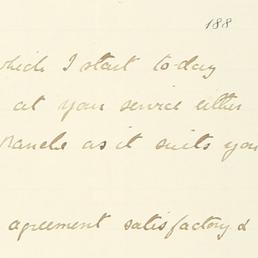 188
which I start to-day
at your service either
Ranche as it suits you
agreement satisfactory &